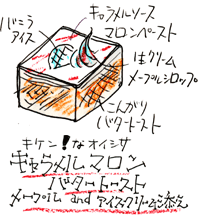 キャラメルソース
マロンペースト
バニラ
アイス
生クリーム
メープルシロップ
こんがり
バタートースト
キケン!なオイシサ
キャラメルマロン
バタートースト
メープル and アイスクリーム添え